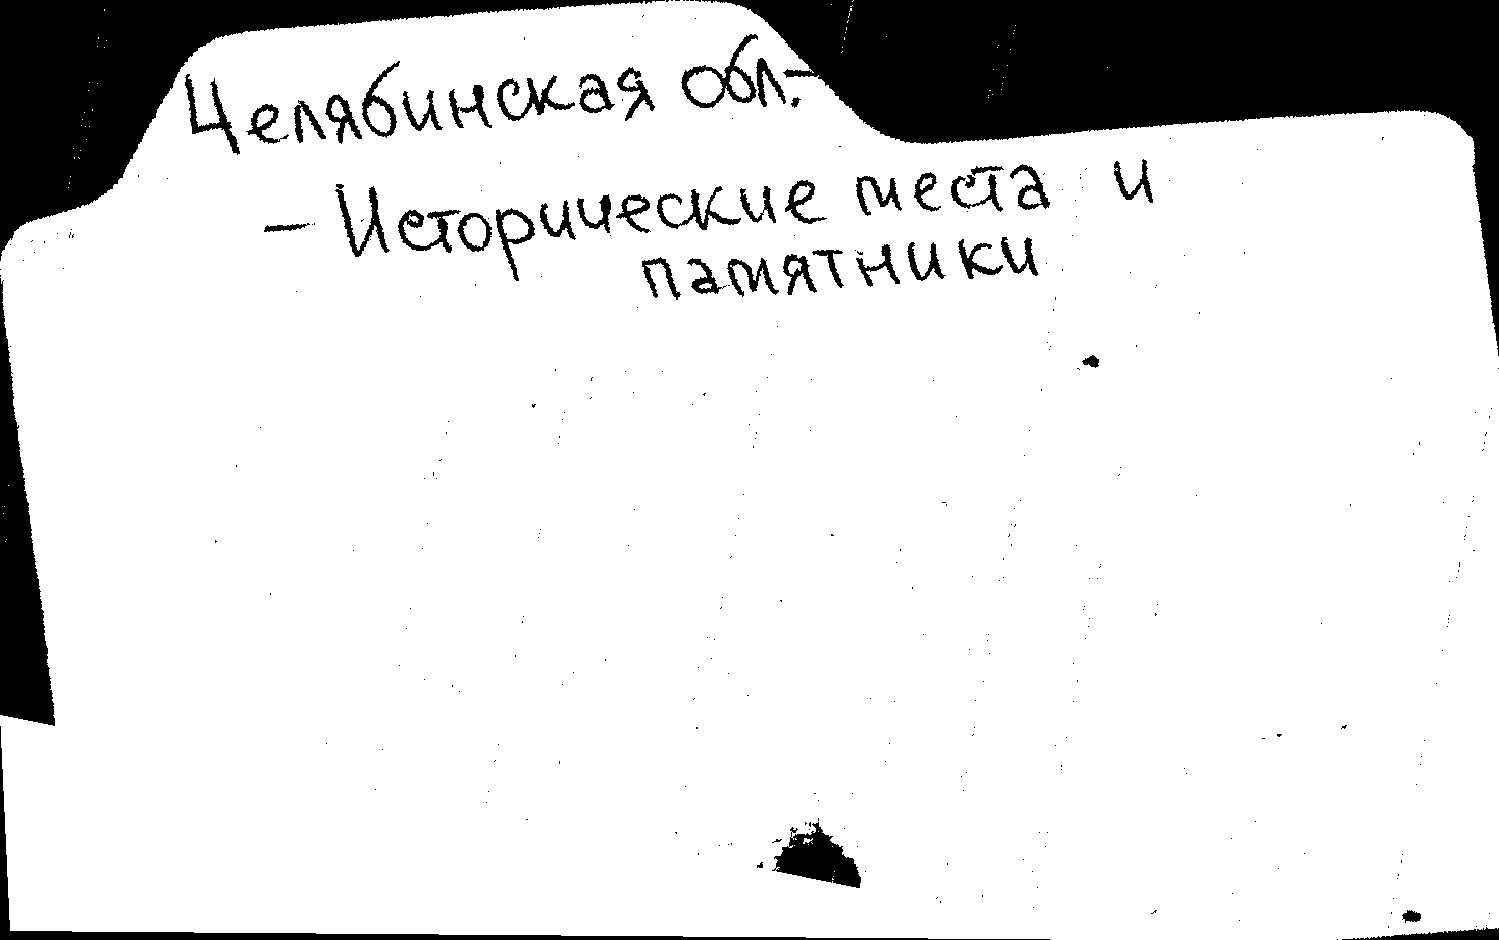 Челябинская обл.-
- Исторические места и
памятники